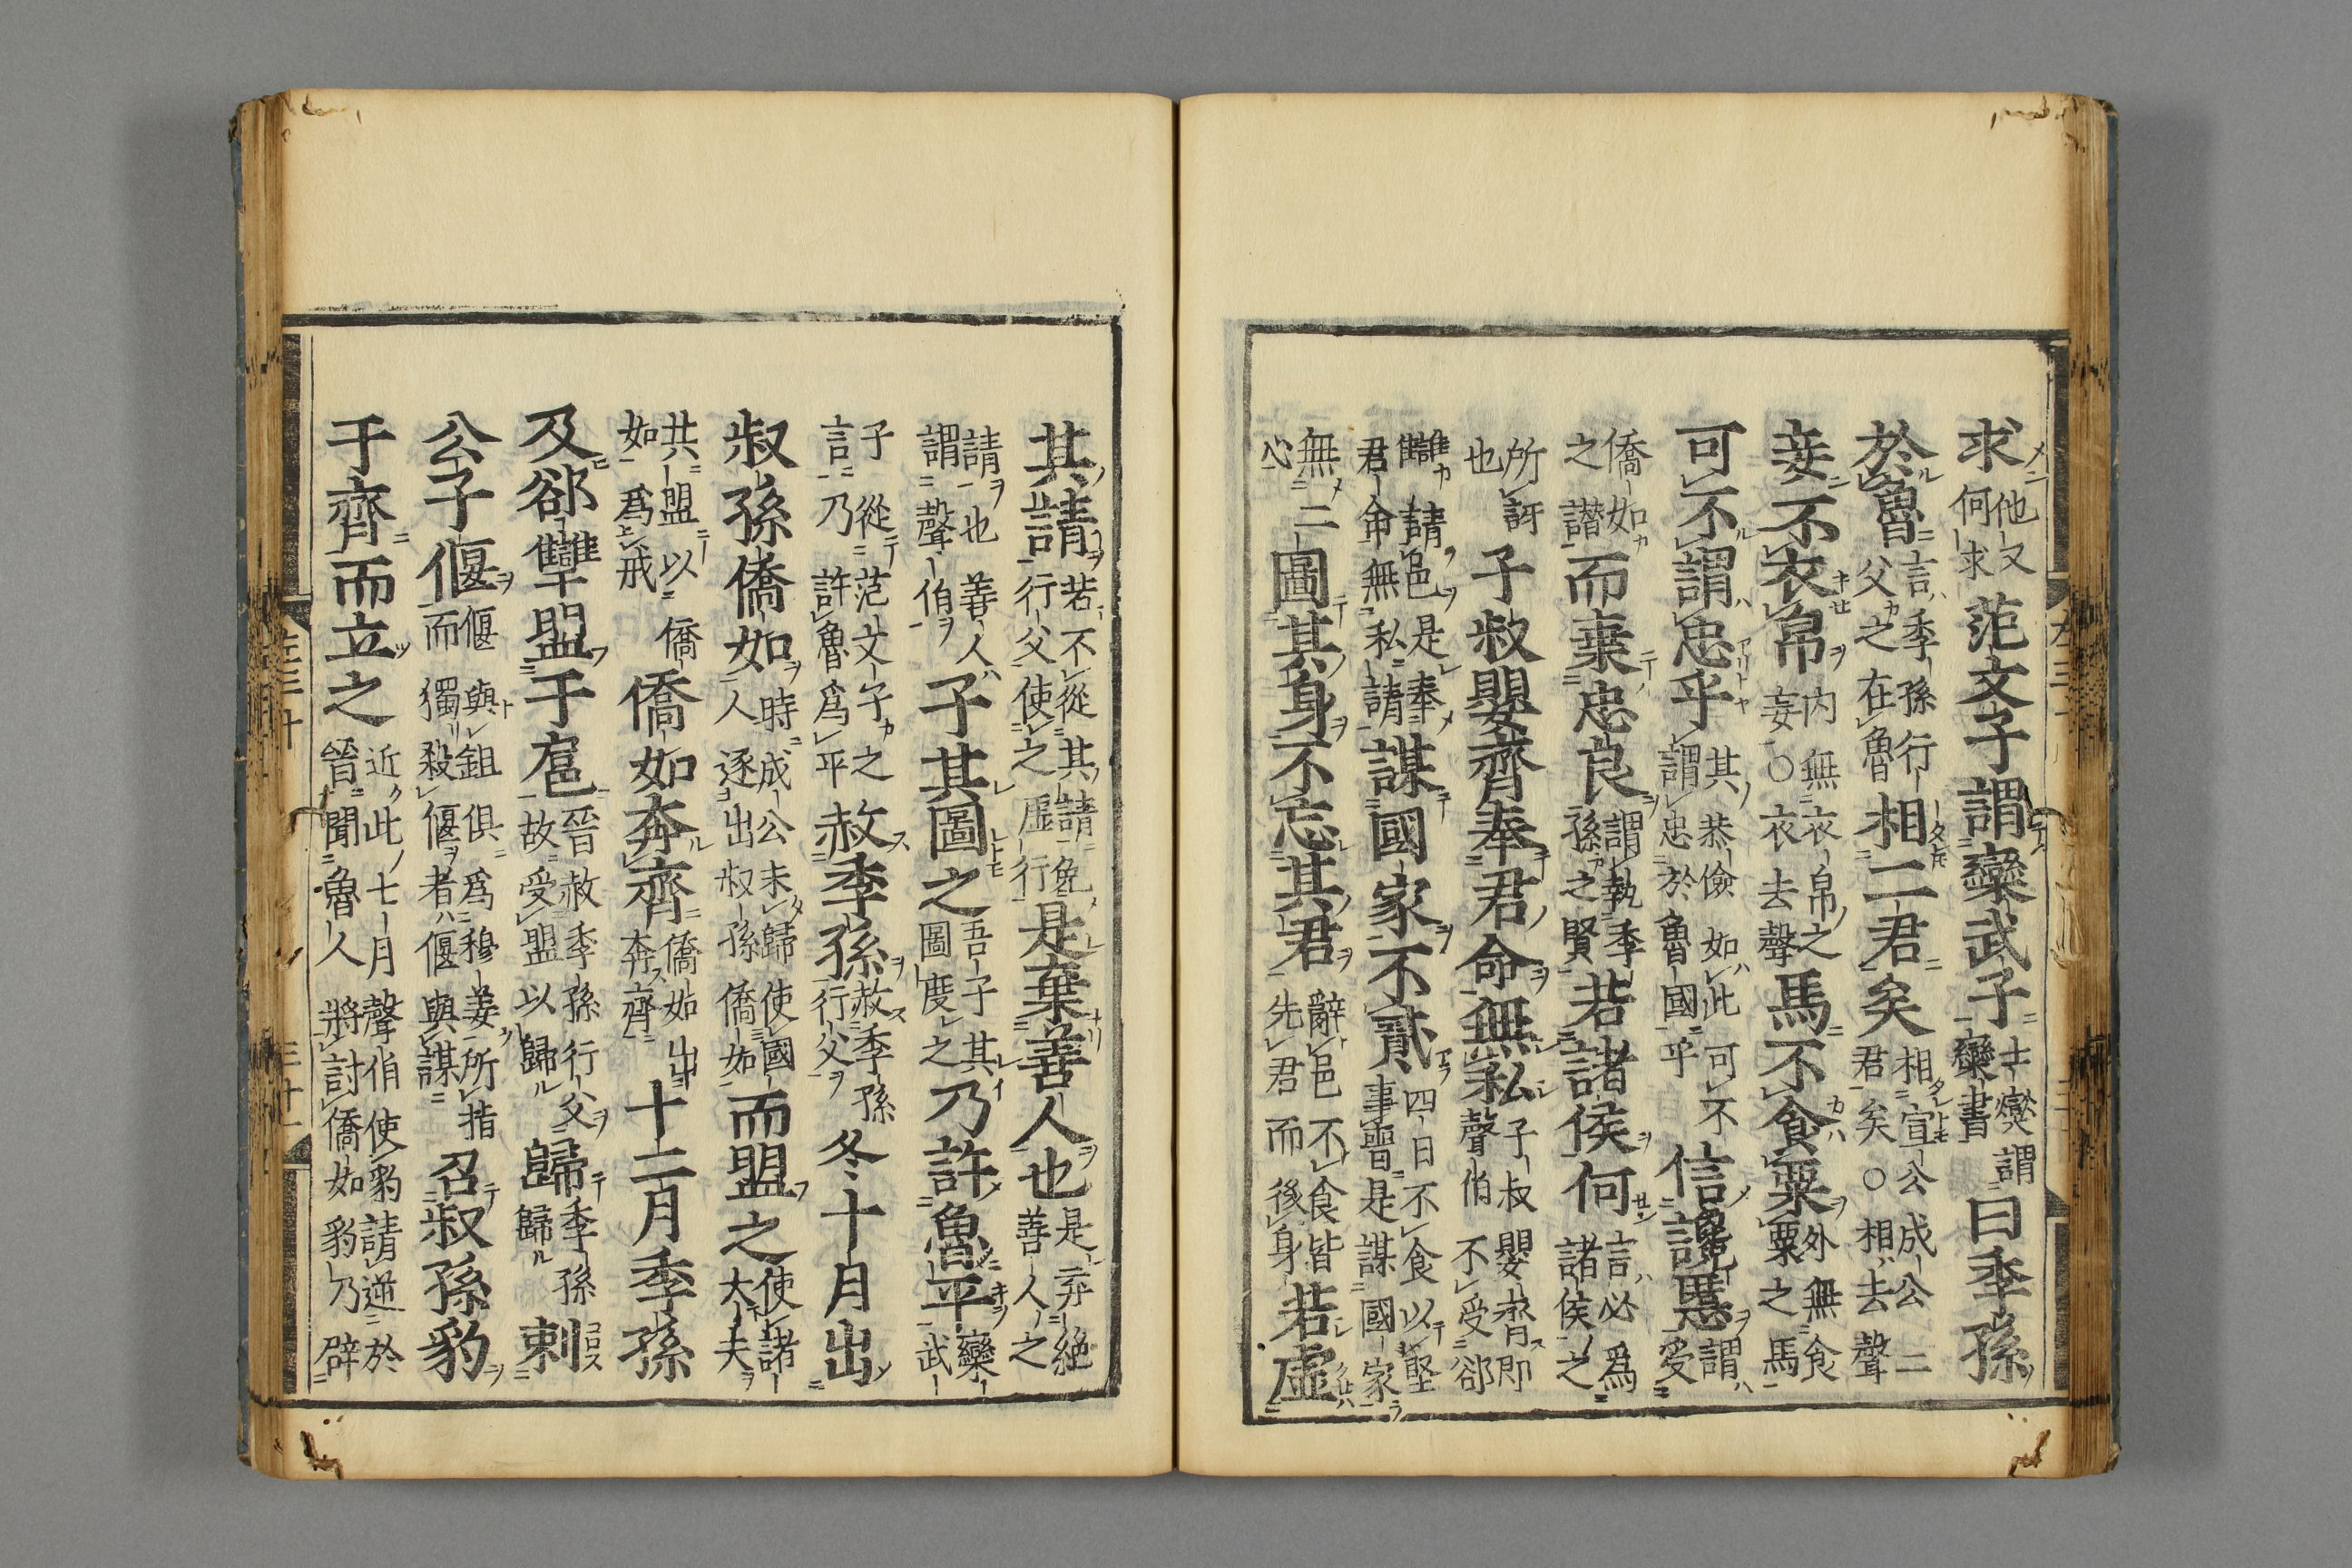 求他又何求范文子謂欒武子士燮謂欒書曰季孫
於魯言季孫行父之在魯相二君矣相宣公成公二君矣○相去聲
妾不衣帛内無衣帛之妾○衣去聲馬不食粟外無食粟之馬
可不謂忠乎其恭儉如此可不謂忠於魯國乎信讒慝謂受
僑如之譖而棄忠良謂執季孫之賢若諸侯何言必爲諸侯之
所訝也子叔嬰齊奉君命無私子叔嬰齊即聲伯不受郤
讎請邑是奉君命無私請謀國家不貳四日不食以堅事晉是謀國家
無二心圖其身不忘其君辭邑不食皆先君而後身若虛
其請若不從其請免行父使之虛行是棄善人也是弃絶善人之
請也善人謂聲伯子其圖之吾子其圖度之乃許魯平欒武
子從范文子之言乃許魯爲平赦季孫赦季孫行父冬十月出
叔孫僑如時成公未歸使國人逐出叔孫僑如而盟之使諸大夫
共盟以僑如爲戒僑如奔齊僑如出奔齊十二月季孫
及郤犫盟于扈晉赦季孫行父故受盟以歸歸季孫歸刺
公子偃偃與鉏俱爲穆姜所指而獨殺偃者偃與謀召叔孫豹
于齊而立之近此七月聲伯使豹請逆於晉聞魯人將討僑如豹乃辟